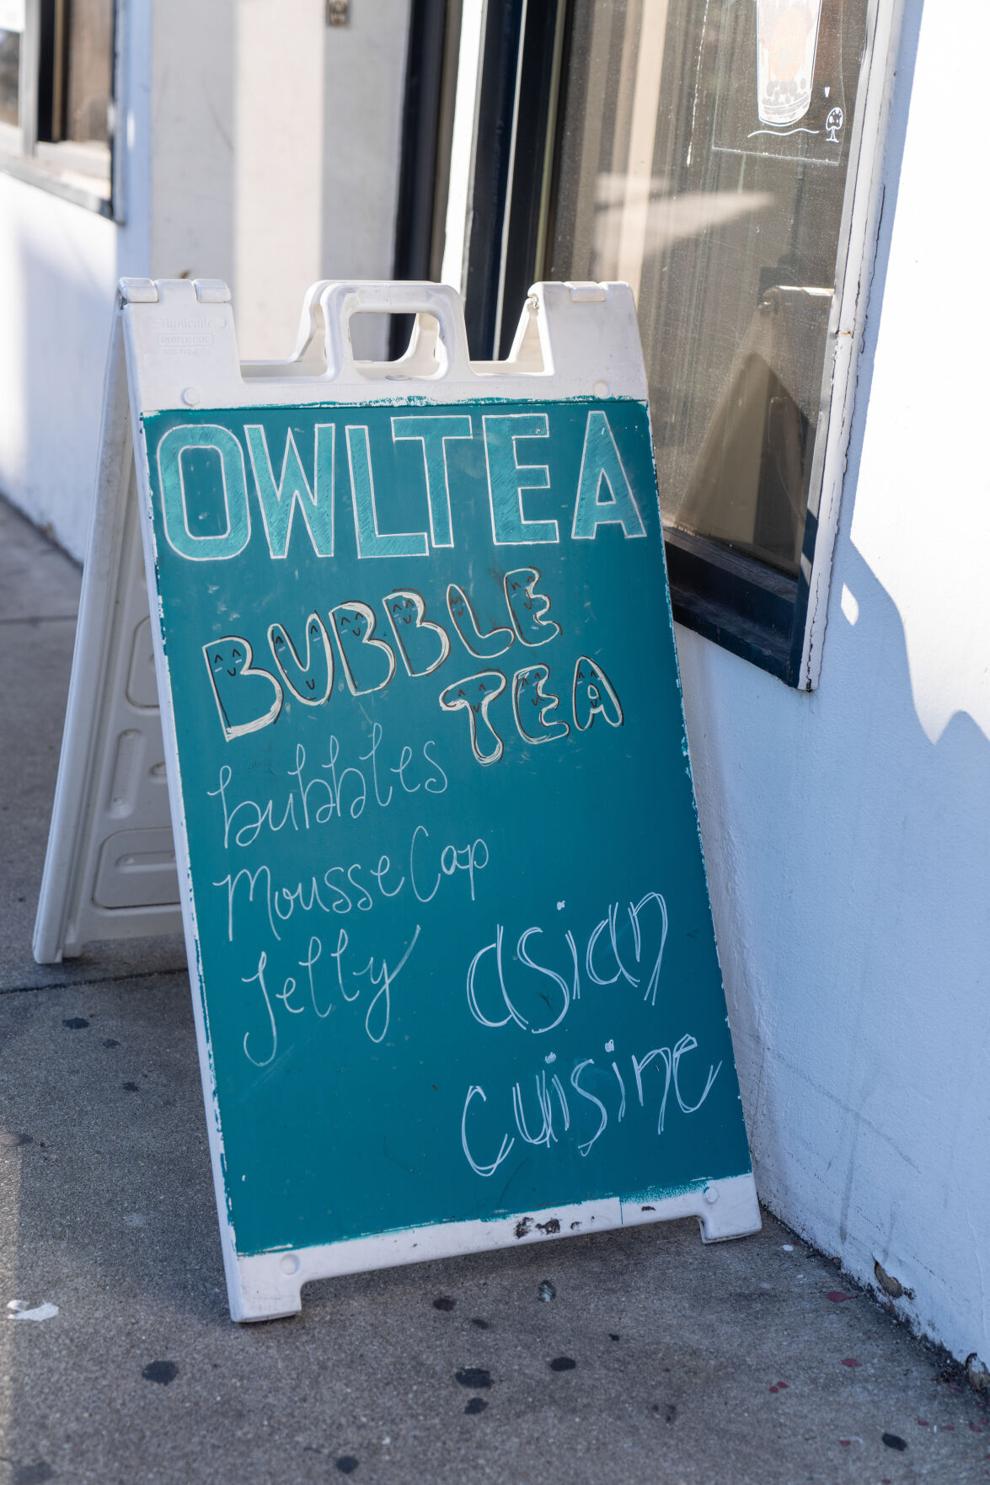 OWLTEA
BUBBLE
TEA
bubbles
Mousse Cap
Jelly
asian
cuisine